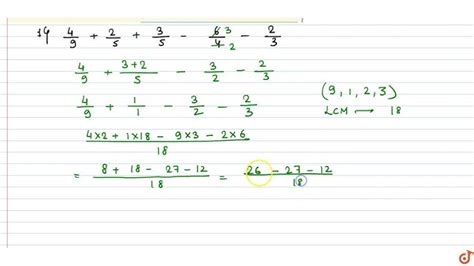 14 4/9 + 2/5 + 3/5 - 6/4 3/2 - 2/3
4/9 + (3+2)/5 - 3/2 - 2/3
4/9 + 1/1 - 3/2 - 2/3
(9, 1, 2, 3)
LCM → 18
(4×2 + 1×18 - 9×3 - 2×6)/18
= (8 + 18 - 27 - 12)/18 = (26 - 27 - 12)/18